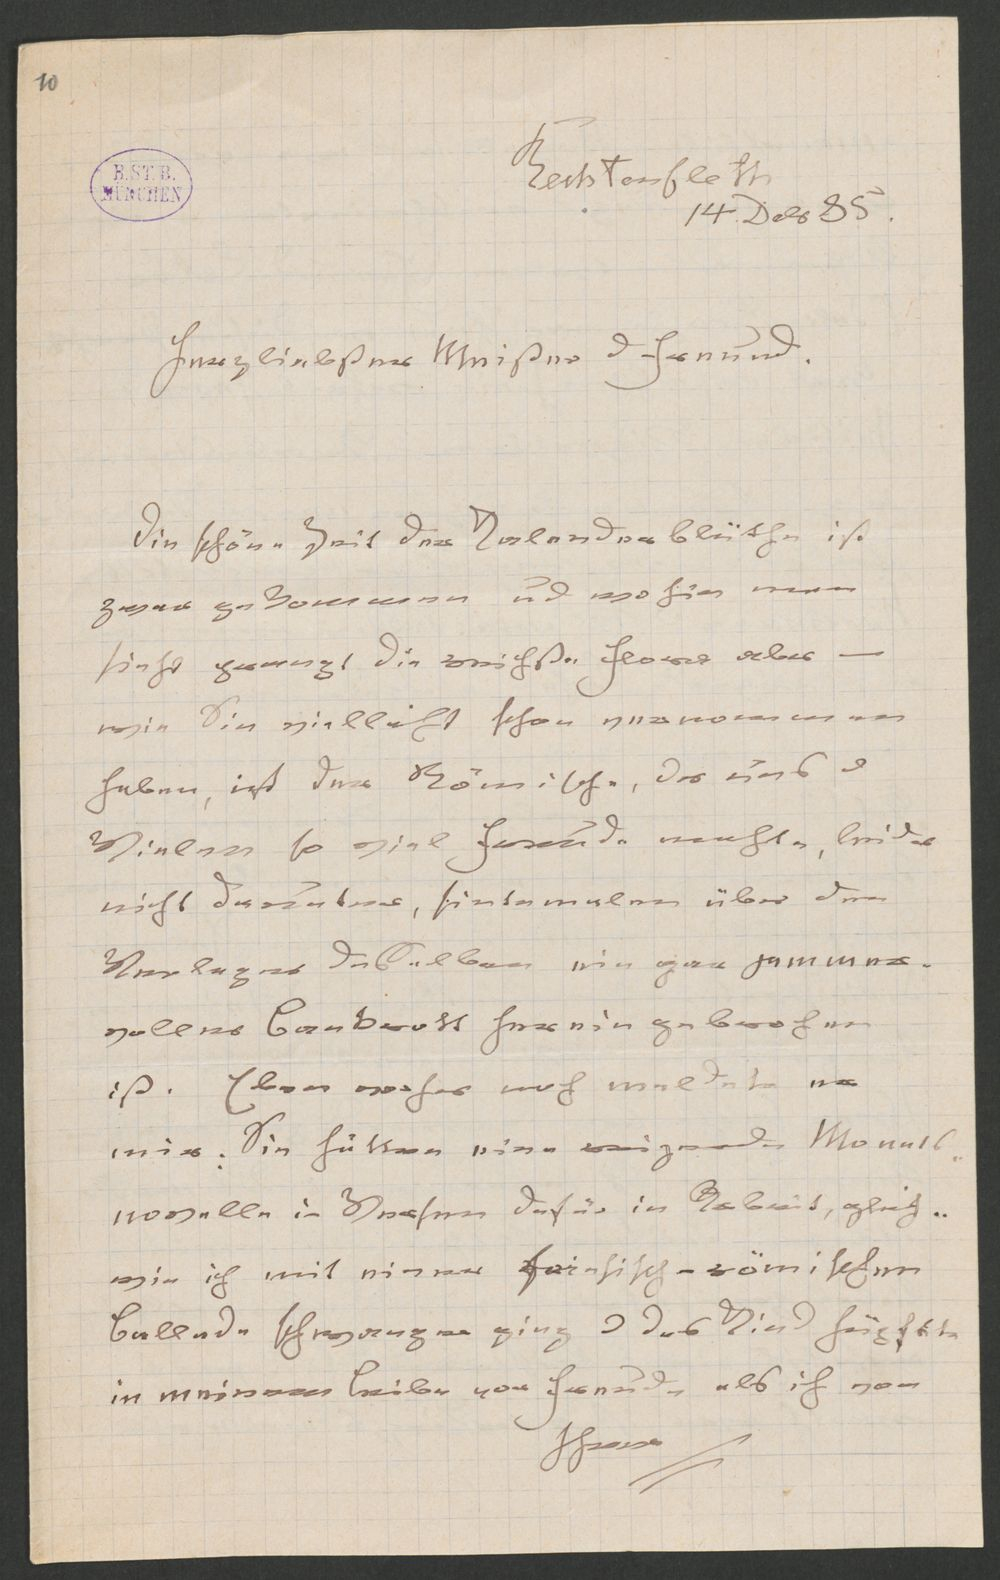 10
B.ST.B.
MÜNCHEN
Rechtenfleth
14. Dcbr 85.
Herzliebster Meister & Freund.
Die schöne Zeit der Kalenderblüthe ist
zwar gekommen und wohin man
sieht prangt die reichste Flora aber —
wie Sie vielleicht schon vernommen
haben, ist der Römische, der uns &
Vielen so viel Freude machte, leider
nicht darunter, sintemalen über den
Verleger desselben ein gar jammer-
voller Bankrott hereingebrochen
ist. Eben vorher noch meldete er
mir: Sie hätten eine Monats-
novelle in Versen dafür in Arbeit, gleich-
wie ich mit einer friesisch-römischen
Ballade schwanger ging & das Kind hüpfte
in meinem Leibe vor Freude als ich von
Ihrer